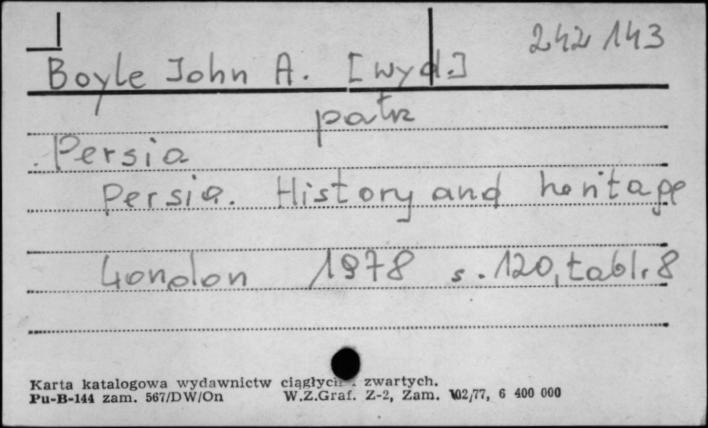 242 143
Boyle John A. [wyd.]
patrz
Persia
Persia. History and heritage
London 1978 s. 120, tabl. 8
Karta katalogowa wydawnictw ciągłych i zwartych.
Pu-B-144 zam. 567/DW/On W.Z.Graf. Z-2, Zam. 102/77, 6 400 000